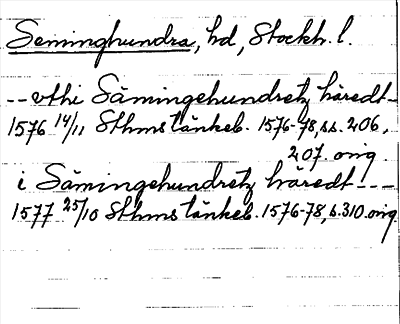 Seminghundra, hd, Stockh. l.
-- vthi Sämingehundretz häredt --
1576 14/11 Sthms tänkeb. 1576-78, ss. 206,
207. orig.
i Sämingehundretz häredt ---
1577 25/10 Sthms tänkeb. 1576-78, s. 310. orig.